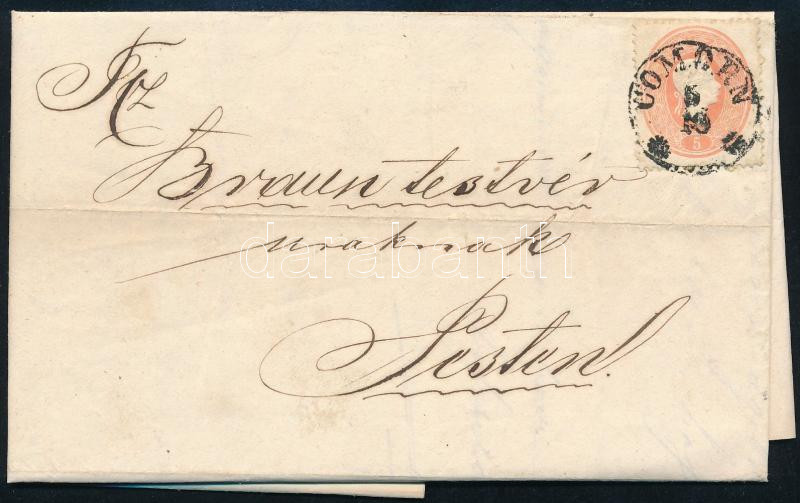 COMORN
5
10
5
Braun testvér
uraknak
Pesten
darabanth